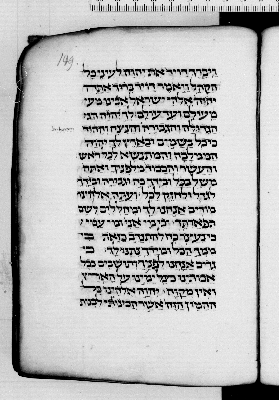 149
ויברך דויד את יהוה לעיני כל
הקהל ויאמר דויד ברוך אתה
יהוה אלהי ישראל אבינו מעו
מעולם ועד עולם לך יהוה הגד
הגדולה והגבורה והנצח וההוד
כי כל בשמים ובארץ לך יהוה
הממלכה והמתנשא לכל ראש
והעשר והכבוד מלפניך ואתה
משל בכל ובידך כח וגבורה ובידך
לגדל ולחזק לכל ועתה אלהינו
מודים אנחנו לך ומהללים לשם
תפארתך וכי מי אני ומי עמי
כי נעצר כח להתנדב כזאת כי
ממך הכל ומידך נתנו לך כי
גרים אנחנו לפניך ותושבים ככל
אבותינו כצל ימינו על הארץ
ואין מקוה יהוה אלהינו כל
ההמון הזה אשר הכינונו לבנות